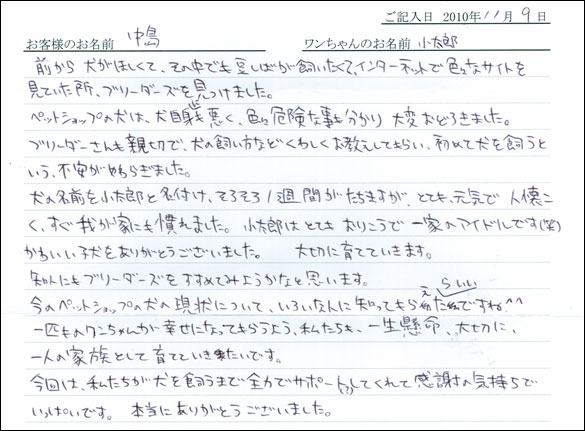 ご記入日 2010年11月9日
お客様のお名前 中島 ワンちゃんのお名前 小太郎
前から犬がほしくて、その中でも豆しばが飼いたくて、インターネットで色々なサイトを
見ていた所、ブリーダーズを見つけました。
ペットショップの犬は、犬自身も悪く、色々危険な事も分かり 大変おどろきました。
ブリーダーさんも親切で、犬の飼い方などくわしくお教えしてもらい、初めて犬を飼うと
いう、不安がやわらぎました。
犬の名前を小太郎と名付け、そろそろ1週間がたちますが、とても、元気で人懐こ
く、すぐ我が家にも慣れました。 小太郎はとてもおりこうで一家のアイドルです(笑)
かわいい子犬をありがとうございました。 大切に育てていきます。
知人にもブリーダーズをすすめてみようかなと思います。
今のペットショップの犬の現状について、いろいろな人に知ってもらえたらいいですね^^
一匹ものワンちゃんが幸せになってもらうよう、私たちも、一生懸命、大切に、
一人の家族として育てていきたいです。
今回は、私たちが犬を飼うまで全力でサポート(?)してくれて感謝の気持ちで
いっぱいです。 本当にありがとうございました。